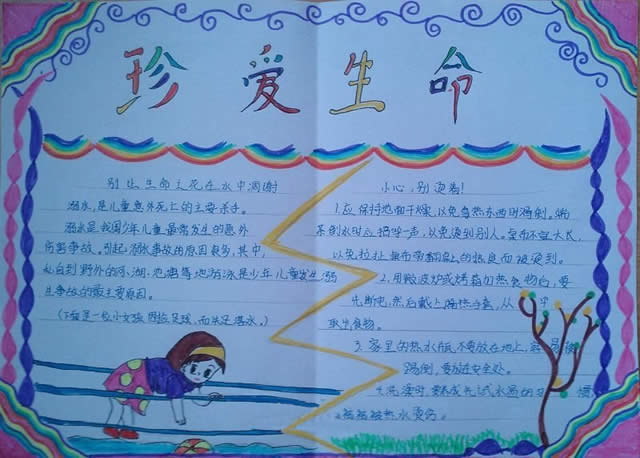 珍爱生命
别让生命之花在水中凋谢
溺水,是儿童意外死亡的主要杀手。
溺水是我国少年儿童最易发生的意外
伤害事故。引起溺水事故的原因很多,其中,
私自到野外的河、湖、池塘等地游泳是少年儿童发生溺
水事故的最主要原因。
(下面是一位小女孩因捡足球,而失足溺水。)
小心,别烫着!
1.应保持地面干燥,以免端热东西时滑倒。端
开水时应招呼一声,以免烫到别人。桌布不宜太大,
以免拉扯桌布带翻桌上的热食而被烫到。
2.用微波炉或烤箱加热食物后,要
先断电,然后戴上隔热手套,从 中
取出食物。
3.家里的热水瓶不要放在地上,容易被
踢倒,要放在安全处。
4.洗澡时,要养成先试水温的习惯
被热水烫伤。